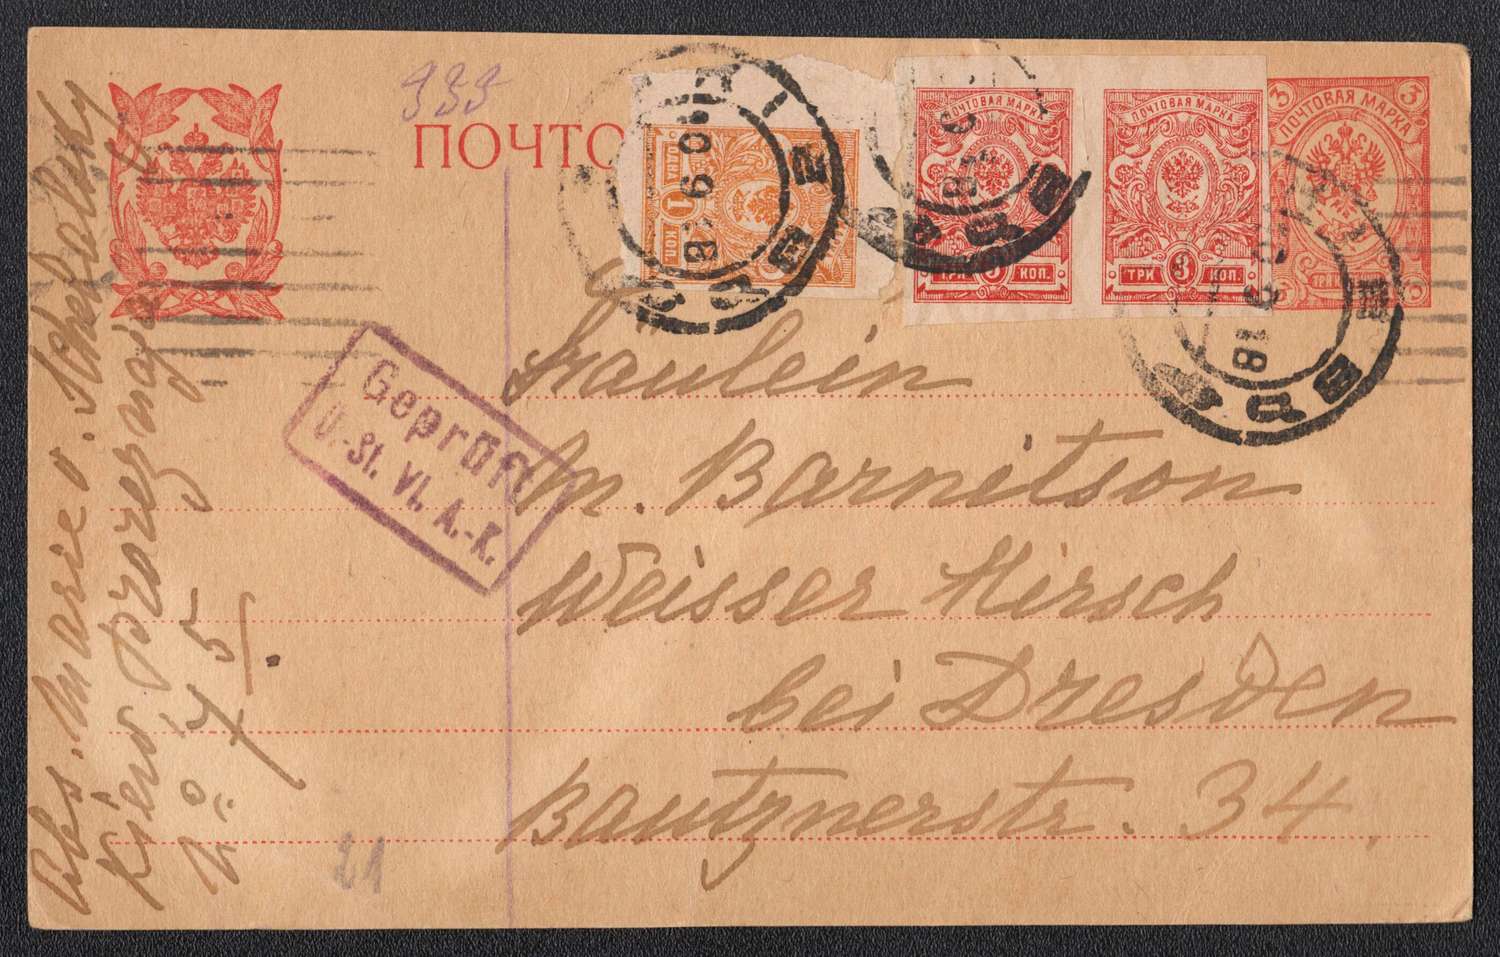 333
ПОЧТО
ПОЧТОВАЯ МАРКА
ТРИ 3 КОП.
ПОЧТОВАЯ МАРКА
ТРИ 3 КОП.
3 ПОЧТОВАЯ МАРКА 3
1 КОП.
9 18
9 18
Geprüft
Ü.-St. VI. A.-K.
Fräulein
M. Barnitson
Weisser Hirsch
bei Dresden
Bautznerstr. 34.
Abs. Marie v.
Kiew
№ 45
21